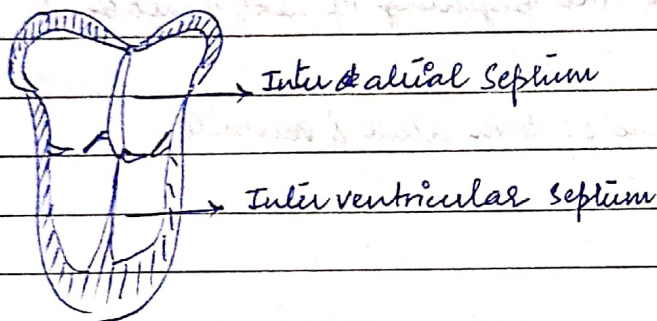 Inter atrial Septum
Inter ventricular Septum